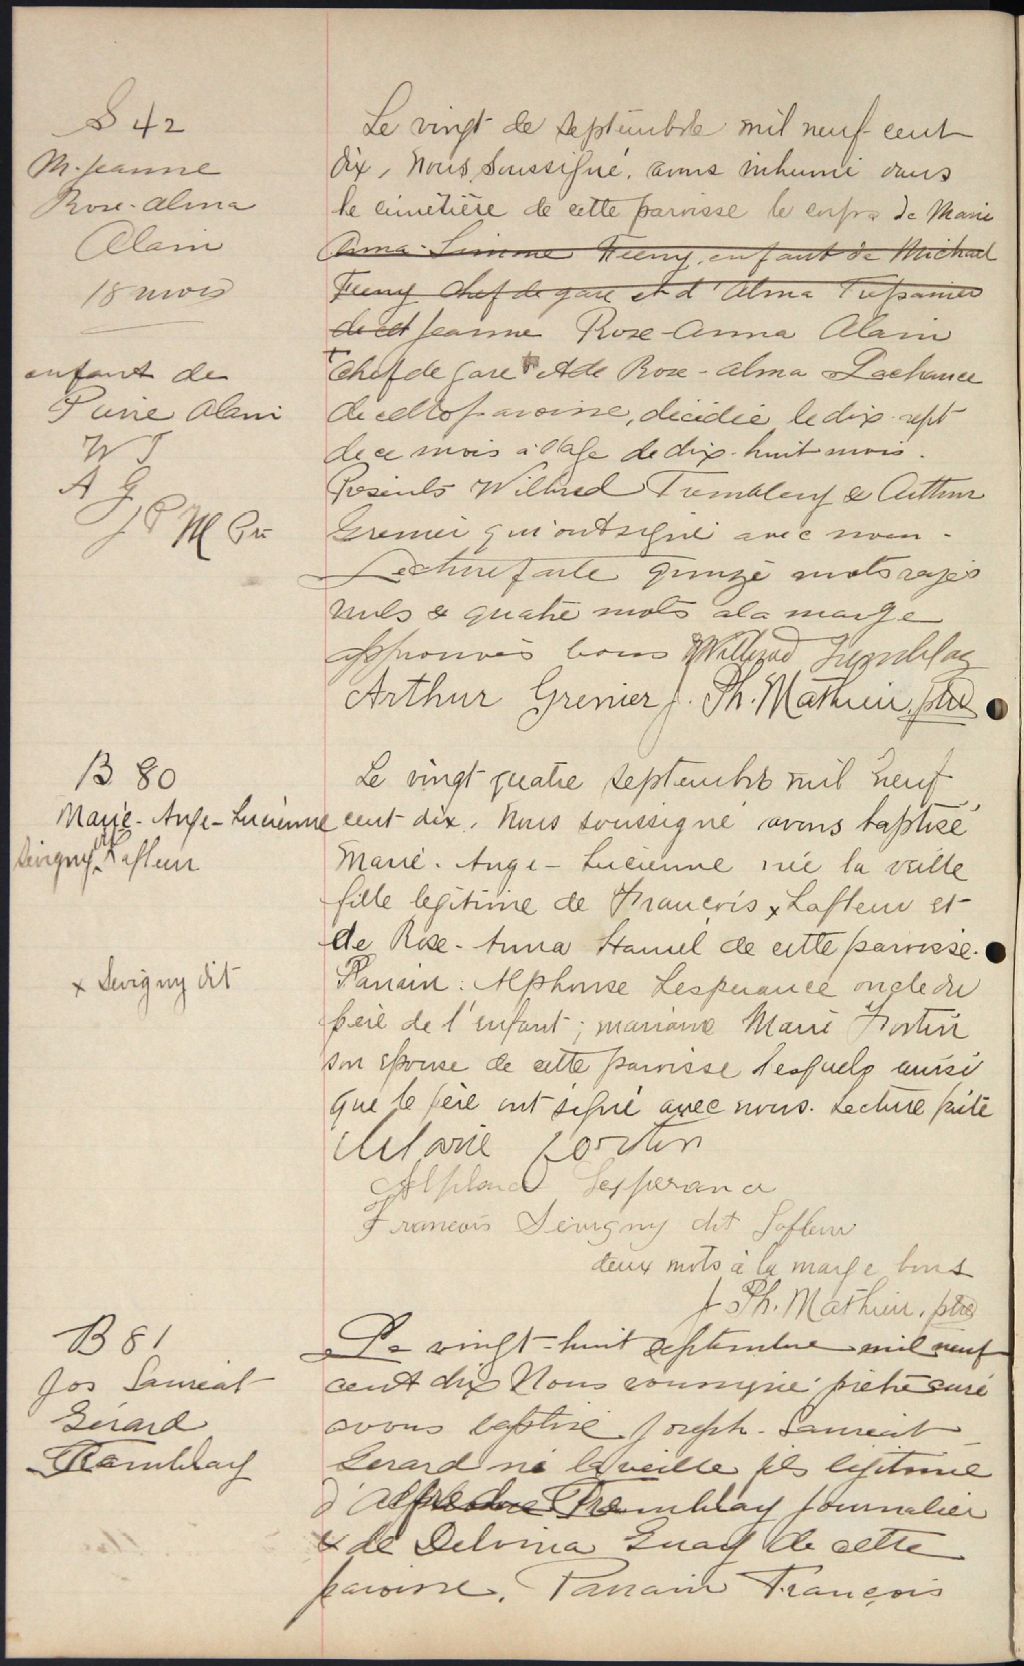 S 42
M. Jeanne
Rose-Alma
Alain
18 mois
enfant de
Pierre Alain
W T
A G
J P M Ptr
Le vingt de septembre mil neuf cent
dix, Nous soussigné, avons inhumé dans
le cimétière de cette paroisse le corps de Marie
Anna-Simone Feeny, enfant de Michael
Feeny chef de gare et d'Alma Trépanier
de cet Jeanne Rose-Anna Alain
+ chef de gare & de Rose-alma Lachance
de cette paroisse, décédée le dix-sept
de ce mois à l'âge de dix-huit mois.
Présents Wilbrod Tremblay & Arthur
Grenier qui ont signé avec nous.
Lecture faite quinze mots rayés
nuls & quatre mots à la marge
approuvés bons Wilbrod Tremblay
Arthur Grenier J. Ph. Mathieu, ptre
B 80
Marie-Ange-Lucienne
Sévigny dit Lafleur
x Sévigny dit
Le vingt quatre septembre mil neuf
cent dix, Nous soussigné avons baptisé
Marie-Ange-Lucienne née la veille
fille légitime de François x Lafleur et
de Rose-Anna Hamel de cette paroisse.
Parrain: Alphonse Lesperance oncle du
père de l'enfant; marraine Marie Fortin
son épouse de cette paroisse lesquels ainsi
que le père ont signé avec nous. Lecture faite
Marie fortin
Alphonse Lesperance
François Sévigny dit Lafleur
deux mots à la marge bons
J. Ph. Mathieu, ptre
B 81
Jos Lauréat
Gérard
Tremblay
Le vingt-huit septembre mil neuf
cent dix Nous soussigné prêtre curé
avons baptisé Joseph-Lauréat
Gérard né la veille fils légitime
d'Alfred Tremblay journalier
& de Delvina Guay de cette
paroisse. Parrain François